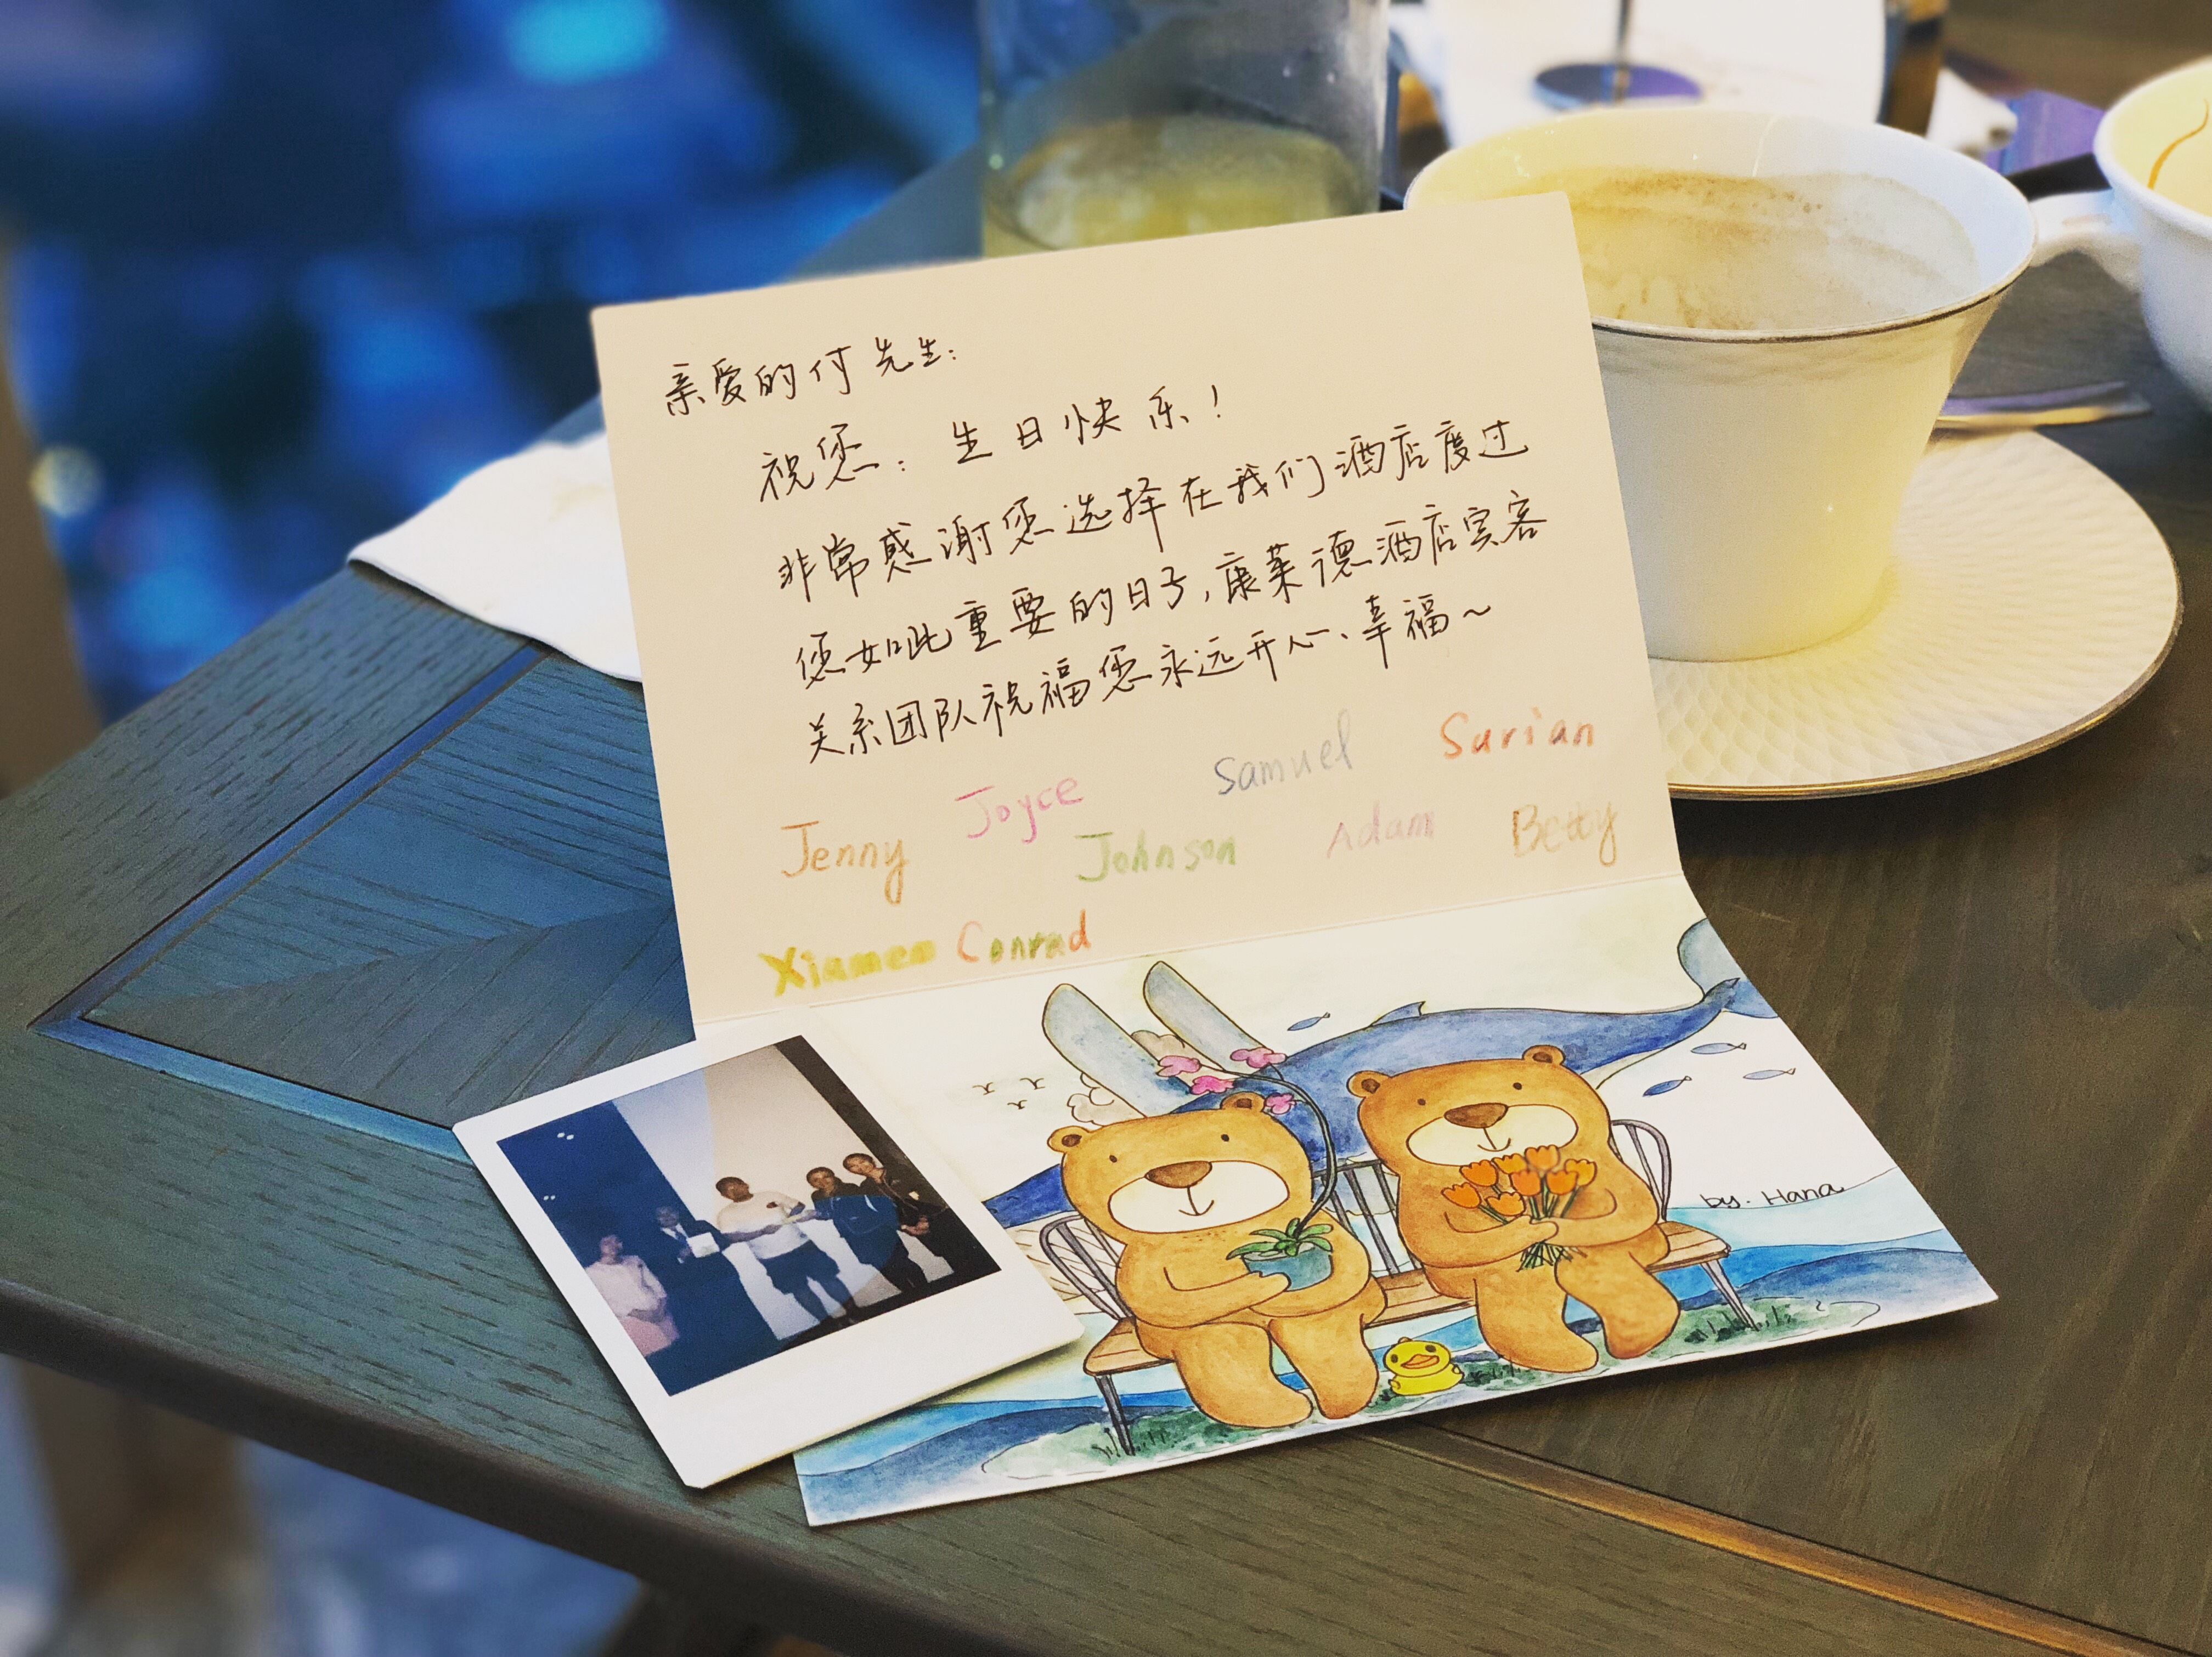 亲爱的付先生:
祝您:生日快乐!
非常感谢您选择在我们酒店度过
您如此重要的日子,康莱德酒店宾客
关系团队祝福您永远开心、幸福~
Joyce Samuel Surian
Jenny Johnson Adam Betty
Xiamen Conrad
by. Hana